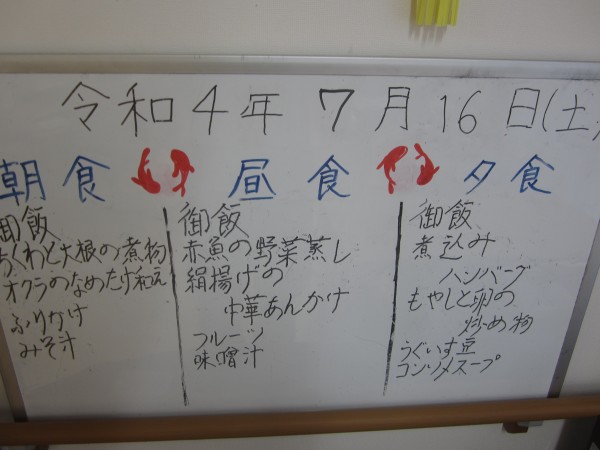 令和4年 7月16日(土)
朝食 昼食 夕食
御飯
ちくわと大根の煮物
オクラのなめたけ和え
ふりかけ
みそ汁
御飯
赤魚の野菜蒸し
絹揚げの
中華あんかけ
フルーツ
味噌汁
御飯
煮込み
ハンバーグ
もやしと卵の
炒め物
うぐいす豆
コンソメスープ